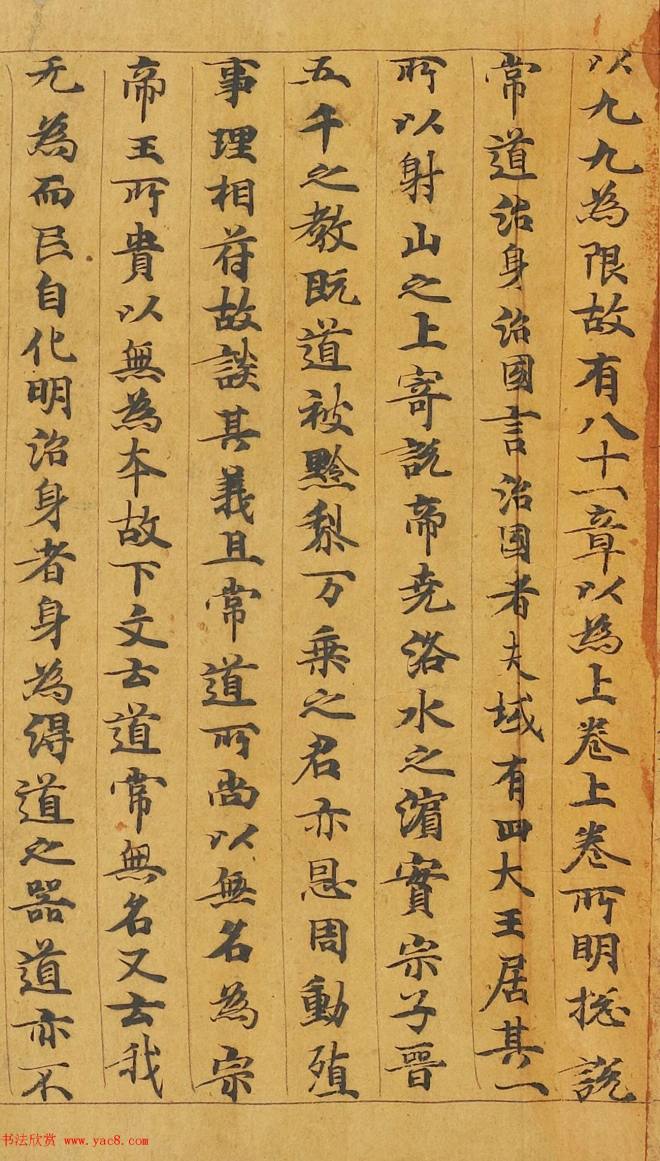 以九九為限故有八十一章以為上卷上卷所明捴說
常道治身治國言治國者夫域有四大王居其一
所以射山之上寄說帝尭洛水之濵實宗子晉
五千之教既道被黔梨万乗之君亦恩周動殖
事理相符故談其義且常道所尚以無名為宗
帝王所貴以無為本故下文云道常無名又云我
无為而民自化明治身者身為得道之器道亦不
书法欣赏 www.yac8.com